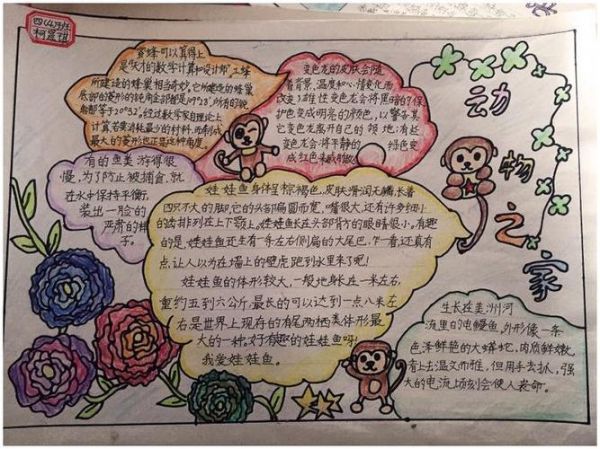 四(4)班
柯昱琪
蜜蜂可以算得上
是天才的数学计算和设计师,工蜂
所建造的蜂巢相当奇妙,它所建造的蜂巢
底部的菱形的钝角全部都是109°28′,所有的锐
角都等于70°32′,经过数学家自理论上
计算,若要消耗最少的材料,而制成
最大的菱形也正是这种角度。
变色龙的皮肤会随
着背景、温度和心情变化而
改变;雄性变色龙会将黑暗的保
护色变成明亮的颜色,以警告其
它变色龙离开自己的领地;有些
变色龙会将平静的绿色变
成红色来威吓敌
动物之家
有的鱼类游得很
慢,为了防止被捕食,就
在水中保持平衡,
装出一脸的
严肃的样
子。
娃娃鱼身体呈棕褐色,皮肤滑润无鳞,长着
四只不大的脚,它的头部扁圆而宽,嘴很大,还有许多细小
的齿排列在上下颚上。娃娃鱼长在头部背方的眼睛很小。有趣
的是,娃娃鱼还生有一条左右侧扁的大尾巴,乍一看,还真有
点让人以为在墙上的壁虎跑到水里来了吧!
娃娃鱼的体形较大,一般地身长在一米左右,
重约五到六公斤,最长的可以达到一点八米左
右,是世界上现存的有尾两栖类体形最
大的一种。好有趣的娃娃鱼吗!
我爱娃娃鱼。
生长在美洲河
流里的电鳗鱼,外形像一条
色泽鲜艳的大蟒蛇,肉质鲜嫩,
看上去温文而雅,但用手去抓,强
大的电流,顷刻会使人丧命。